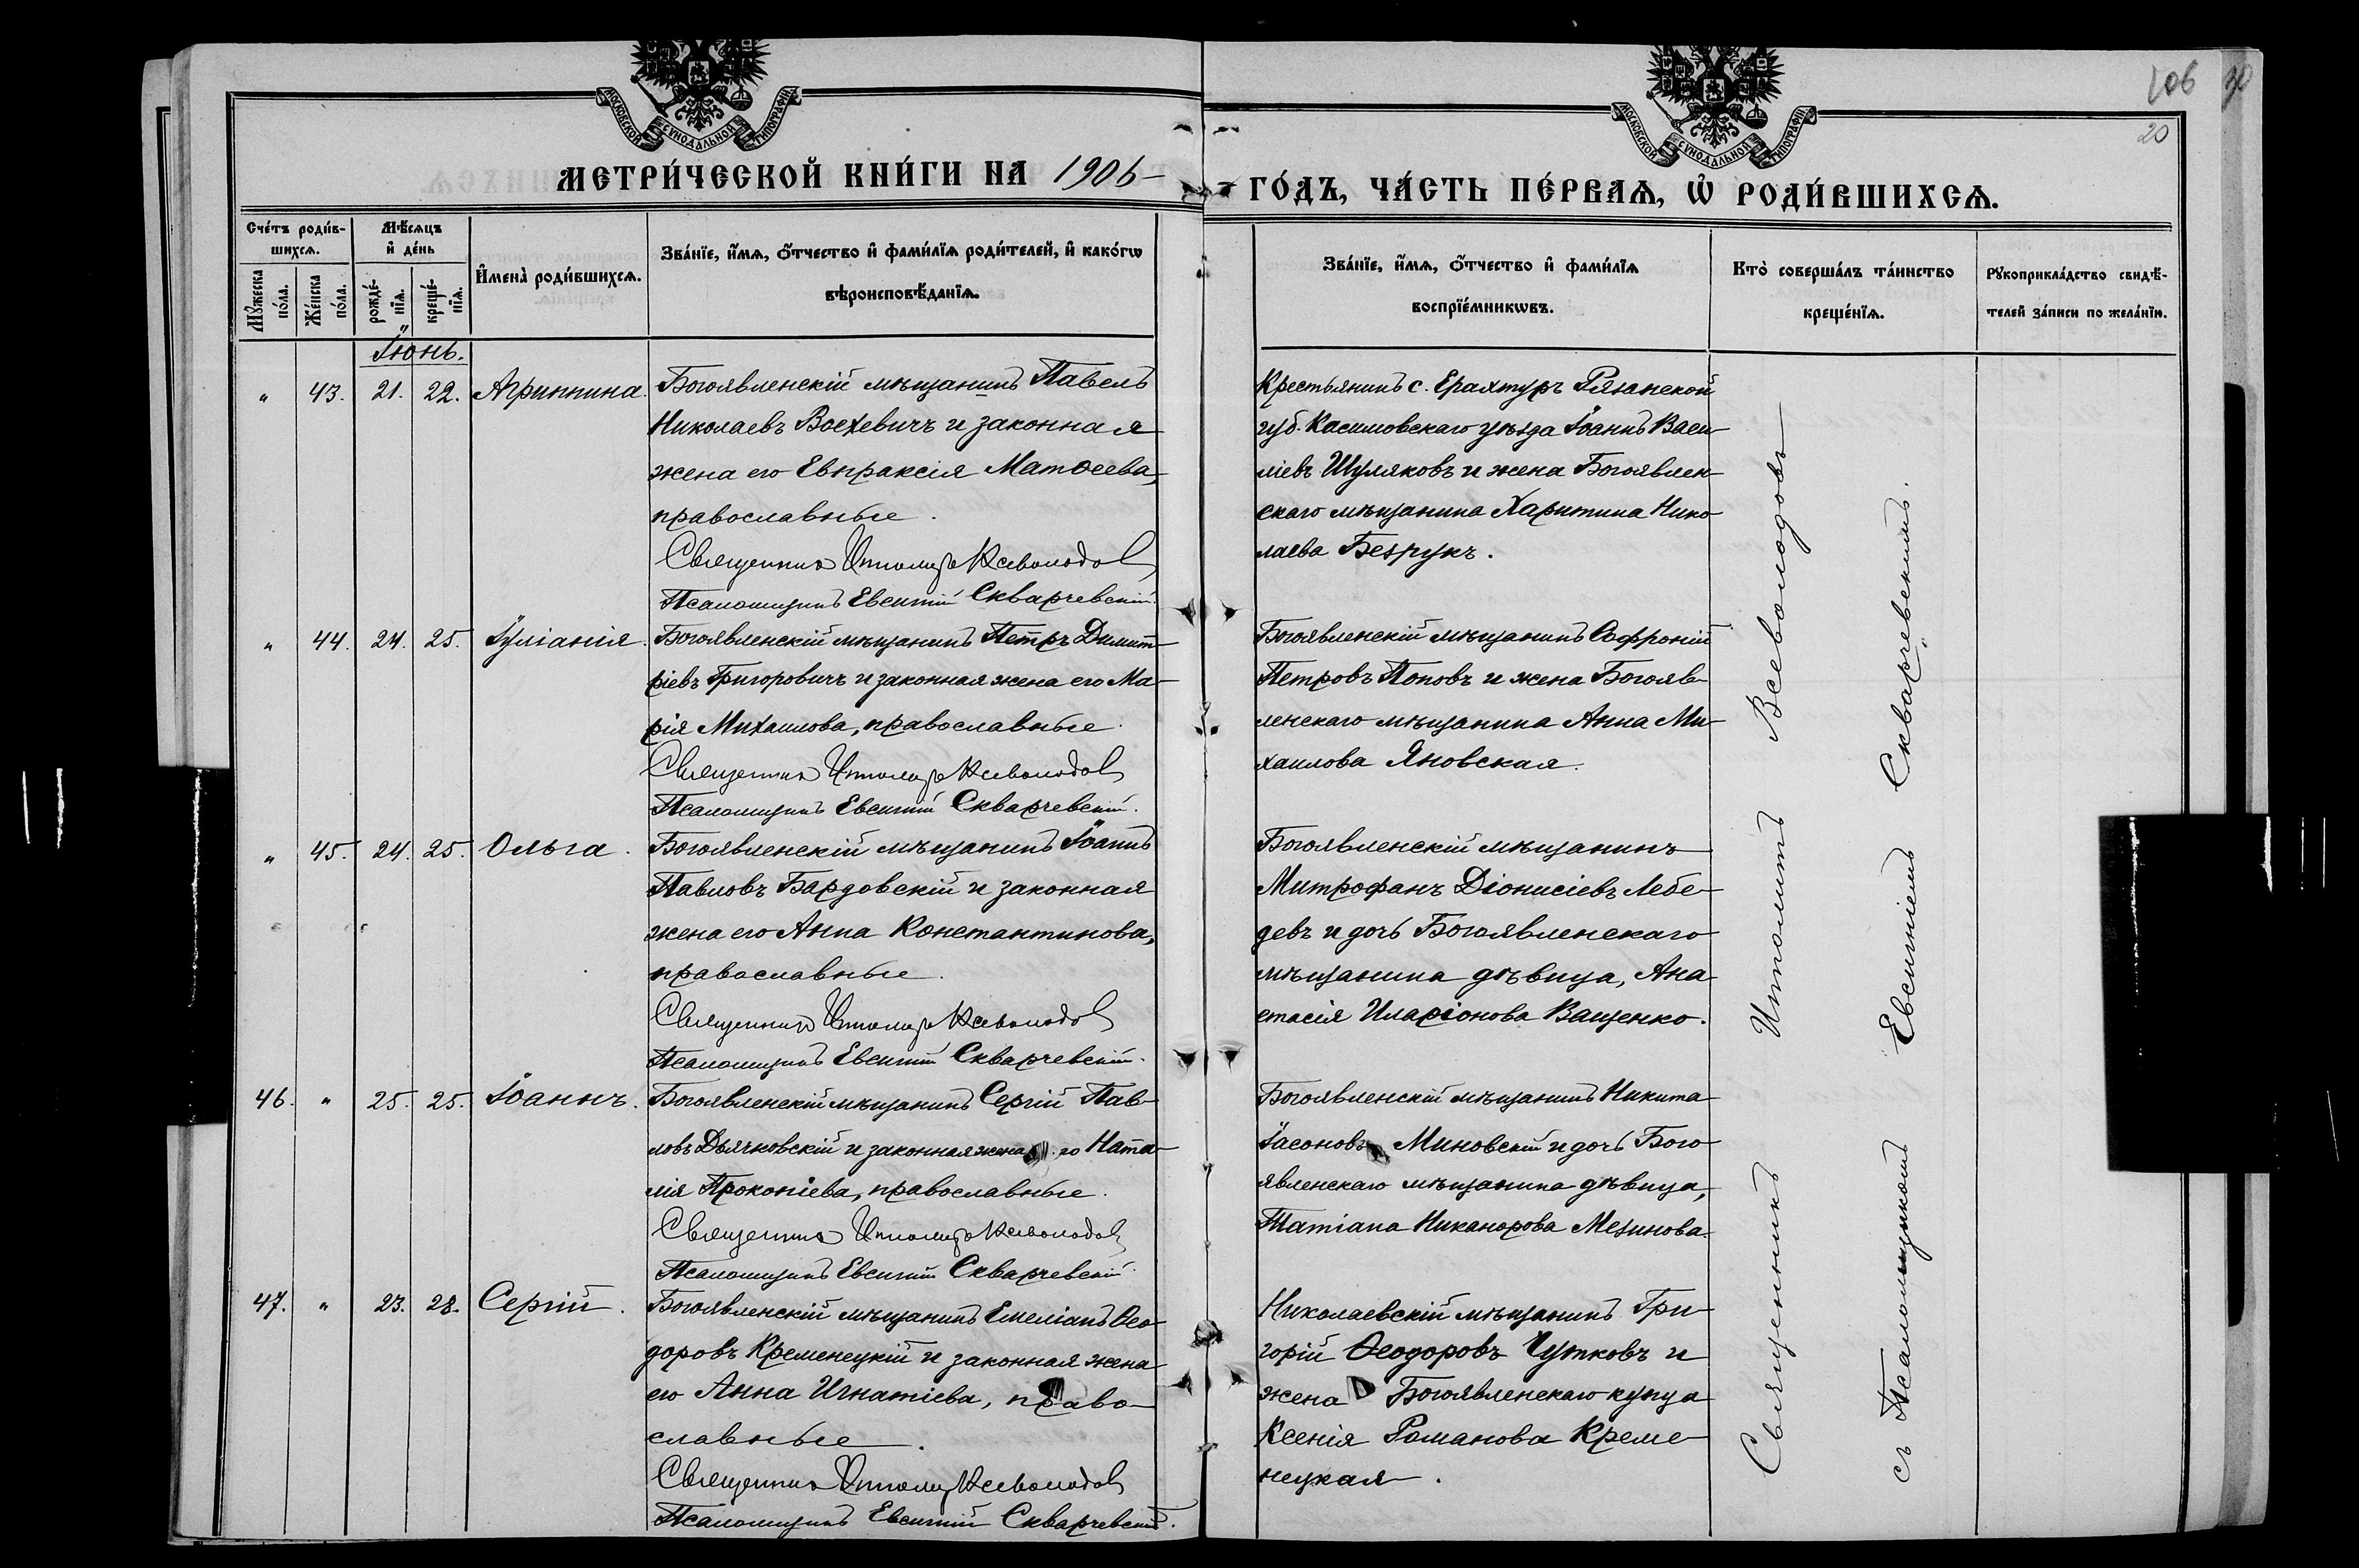 МОСКОВСКОЙ СѴНОДАЛЬНОЙ ТИПОГРАФІИ
МОСКОВСКОЙ СѴНОДАЛЬНОЙ ТИПОГРАФІИ
106
20
МЕТРИ́ЧЕСКОЙ КНИ́ГИ НА 1906
ГО́ДЪ, ЧА́СТЬ ПЕ́РВАѦ, Ѡ҆ РОДИ́ВШИХСѦ.
Сче́тъ роди́в-
шихсѧ.
Мѣ́сѧцъ
и҆ де́нь
Мꙋ́жеска
по́ла.
Же́нска
по́ла.
рожде́-
нїѧ.
креще́-
нїѧ.
И҆мена̀ роди́вшихсѧ.
Зва́нїе, и҆́мѧ, ѻ҆́тчество и҆ фами́лїѧ роди́телей, и҆ како́гѡ
вѣроисповѣ́данїѧ.
Зва́нїе, и҆́мѧ, ѻ҆́тчество и҆ фами́лїѧ
воспрїе́мникѡвъ.
Кто̀ соверша́лъ та́инство
креще́нїѧ.
Рꙋкоприкла́дство свидѣ́-
телей за́писи по жела́нїю.
Іюнь.
" 43. 21. 22. Агриппина.
Богоявленскій мѣщанинъ Павелъ
Николаевъ Воехевичъ и законная
жена его Евпраксія Матѳеева,
православные.
Священникъ Ипполитъ Всеволодовъ
Псаломщикъ Евсигній Скварчевскій.
Крестьянинъ с. Ерахтуръ Рязанской
губ. Касимовскаго уѣзда Іоаннъ Васи
ліевъ Шуляковъ и жена Богоявлен
скаго мѣщанина Харитина Нико
лаева Безрукъ.
" 44. 24. 25. Іуліанія.
Богоявленскій мѣщанинъ Петръ Димит-
ріевъ Григоровичъ и законная жена его Ма-
рія Михаилова, православные.
Священникъ Ипполитъ Всеволодовъ
Псаломщикъ Евсигній Скварчевскій.
Богоявленскій мѣщанинъ Софроній
Петровъ Поповъ и жена Богояв-
ленскаго мѣщанина Анна Ми-
хаилова Яновская.
" 45. 24. 25. Ольга.
Богоявленскій мѣщанинъ Іоаннъ
Павловъ Бардовскій и законная
жена его Анна Константинова,
православные.
Священникъ Ипполитъ Всеволодовъ
Псаломщикъ Евсигній Скварчевскій.
Богоявленскій мѣщанинъ
Митрофанъ Діонисіевъ Лебе-
девъ и дочь Богоявленскаго
мѣщанина дѣвица, Ана
стасія Иларіонова Ващенко.
46. " 25. 25. Іоаннъ.
Богоявленскій мѣщанинъ Сергій Пав-
ловъ Дьячковскій и законная жена его Ната-
лія Прокопіева, православные.
Священникъ Ипполитъ Всеволодовъ
Псаломщикъ Евсигній Скварчевскій.
Богоявленскій мѣщанинъ Никита
Іасоновъ Миновскій и дочь Бого
явленскаго мѣщанина дѣвица,
Татіана Никанорова Мезинова.
47. " 23. 28. Сергій.
Богоявленскій мѣщанинъ Емеліанъ Ѳео-
доровъ Кременецкій и законная жена
его Анна Игнатіева, право-
славные.
Священникъ Ипполитъ Всеволодовъ
Псаломщикъ Евсигній Скварчевскій.
Николаевскій мѣщанинъ Гри-
горій Ѳеодоровъ Чутковъ и
жена Богоявленскаго купца
Ксенія Романова Креме-
нецкая.
Священникъ Ипполитъ Всеволодовъ
съ Псаломщикомъ Евсигніемъ Скварчевскимъ.